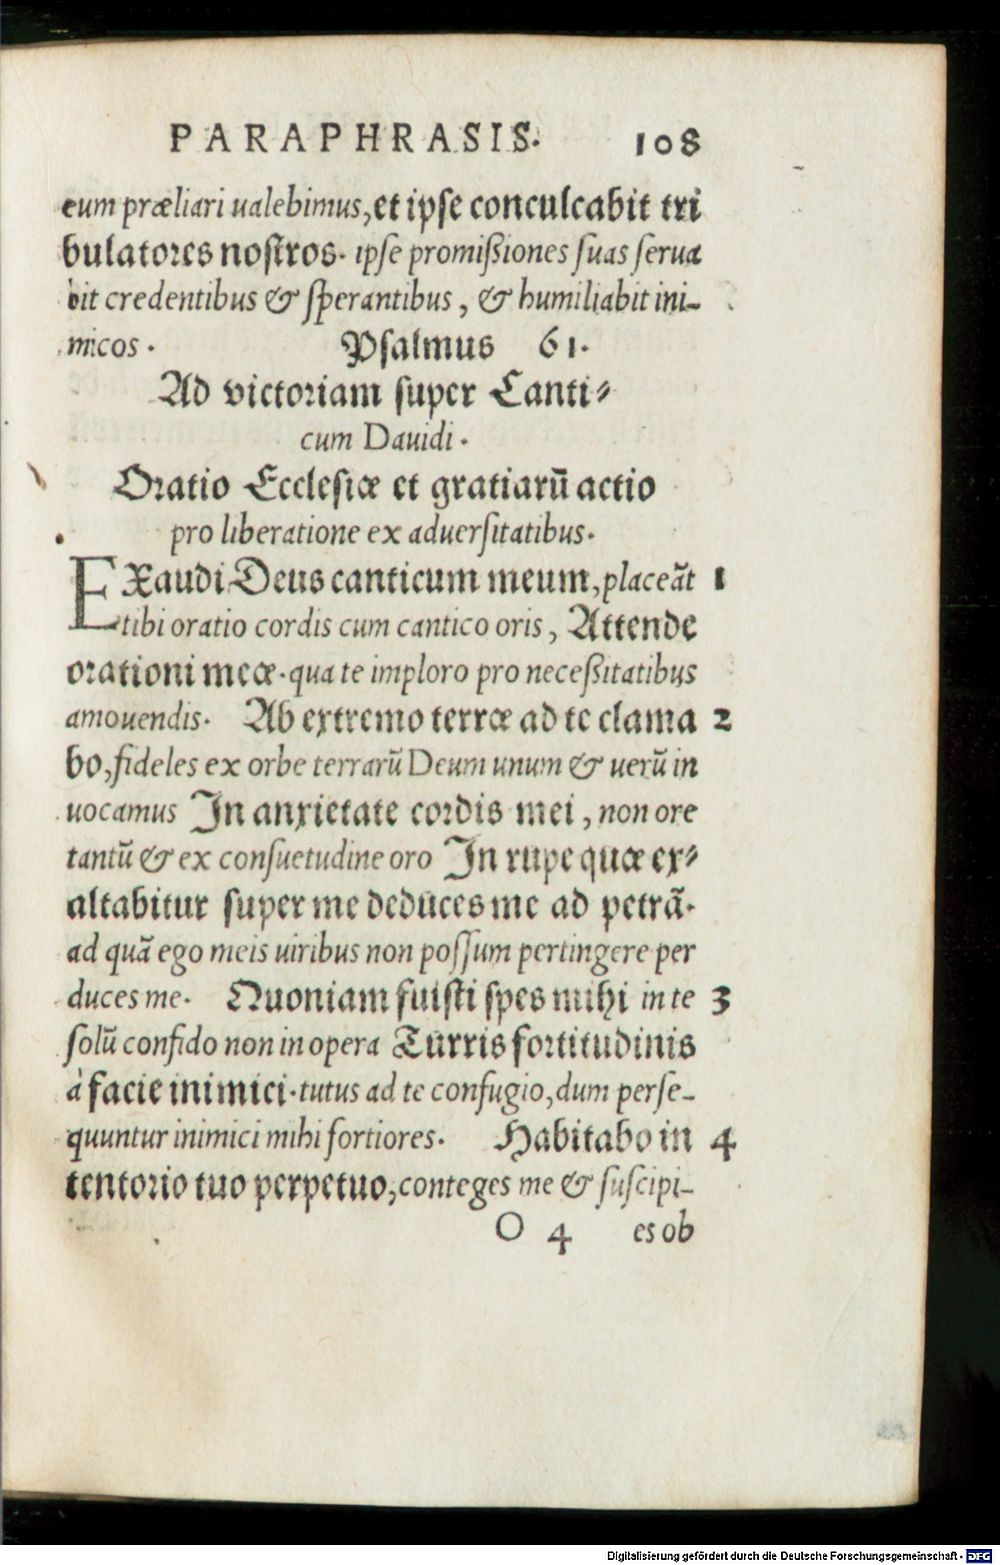 PARAPHRASIS. 108
eum præliari ualebimus, et ipse conculcabit tri
bulatores nostros. ipse promißiones suas serua
bit credentibus & sperantibus, & humiliabit ini-
micos. Psalmus 61.
Ad victoriam super Canti-
cum Dauidi.
Oratio Ecclesiæ et gratiarū actio
pro liberatione ex aduersitatibus.
EXaudi Deus canticum meum, placeāt 1
tibi oratio cordis cum cantico oris, Attende
orationi meæ. qua te imploro pro neceßitatibus
amouendis. Ab extremo terræ ad te clama 2
bo, fideles ex orbe terrarū Deum unum & uerū in
uocamus In anxietate cordis mei, non ore
tantū & ex consuetudine oro In rupe quæ ex-
altabitur super me deduces me ad petrā.
ad quā ego meis uiribus non possum pertingere per
duces me. Quoniam fuisti spes mihi in te 3
solū confido non in opera Turris fortitudinis
à facie inimici. tutus ad te confugio, dum perse-
quuntur inimici mihi fortiores. Habitabo in 4
tentorio tuo perpetuo, conteges me & suscipi-
O 4 es ob
Digitalisierung gefördert durch die Deutsche Forschungsgemeinschaft - DFG